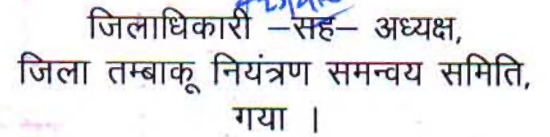 जिलाधिकारी –सह– अध्यक्ष,
जिला तम्बाकू नियंत्रण समन्वय समिति,
गया ।